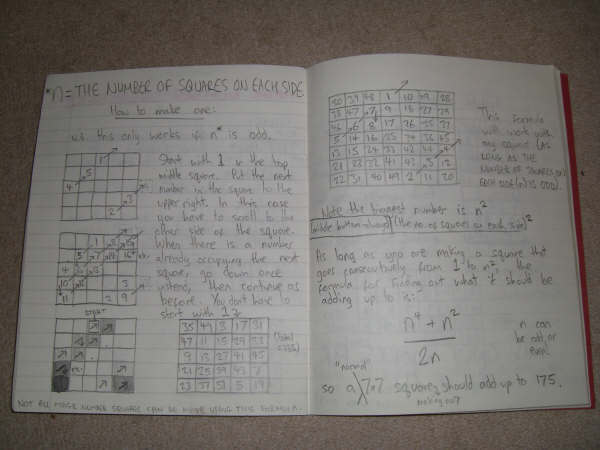 *n = THE NUMBER OF SQUARES ON EACH SIDE
How to make one:
this only works if n* is odd.
Start with 1 in the top
middle square. Put the next
number in the square to the
upper right. In this case
you have to scroll to the
other side of the square.
When there is a number
already occupying the next
square, go down once
instead, then continue as
before. You don't have to
start with 1.
start
35 49 3 17 31
47 11 15 29 33
9 13 27 41 45
21 25 39 43 7
23 37 51 5 19
(total
NOT ALL MAGIC NUMBER SQUARES CAN BE MADE USING THIS FORMULA.
30 39 48 1 10 19 28
38 47 7 9 18 27 29
46 6 8 17 26 35 37
5 14 16 25 34 36 45
13 15 24 33 42 44 4
21 23 32 41 43 3 12
22 31 40 49 2 11 20
This formula
will work with
any square (AS
LONG AS THE
NUMBER OF SQUARES ON
EACH SIDE (n) IS ODD).
Note the biggest number is n²
(the no. of squares on each side)²
As long as you are making a square that
goes consecutively from 1 to n², the
formula for finding out what it should be
adding up to is:
n⁴ + n²
2n
n can
be odd or
even!
"normal"
so a 7x7 square should add up to 175.